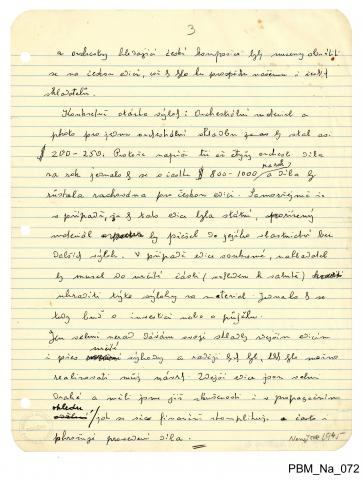 3
a orchestry hledající české komposice by musely obrátit
se na českou edici, což by šlo ku prospěchu našemu i
skladatelů.
Konkretní otázka výloh: Orchestrální materiál a
photo pro jednu orchestrální skladbu by stál asi
$ 200-250. Protože napíši tři až čtyři orchest. díla
na rok jednalo by se o částku $ 800-1000 / a díla by
zůstala zachována pro českou edici. Samozřejmě
v případě, že by tato edice byla státní,
materiál by přešel do jejího vlastnictví bez
dalších výloh. V případě edice soukromé, nakladatel
by musel do určité části (vzhledem k valutě)
uhraditi tyto výlohy na materiál. Jednalo by se
tedy buď o investici nebo o půjčku.
Jen velmi nerad dávám svoje skladby zdejším edicím
i přes určité výhody a raději by byl, kdyby bylo možno
realisovati můj návrh. Zdejší edice jsou velmi
drahé a měli jsme již zkušenosti i s propagačním
ohledu / jak se sice finanční komplikuje a často i
provedení díla.
New York 1945
PBM_Na_072